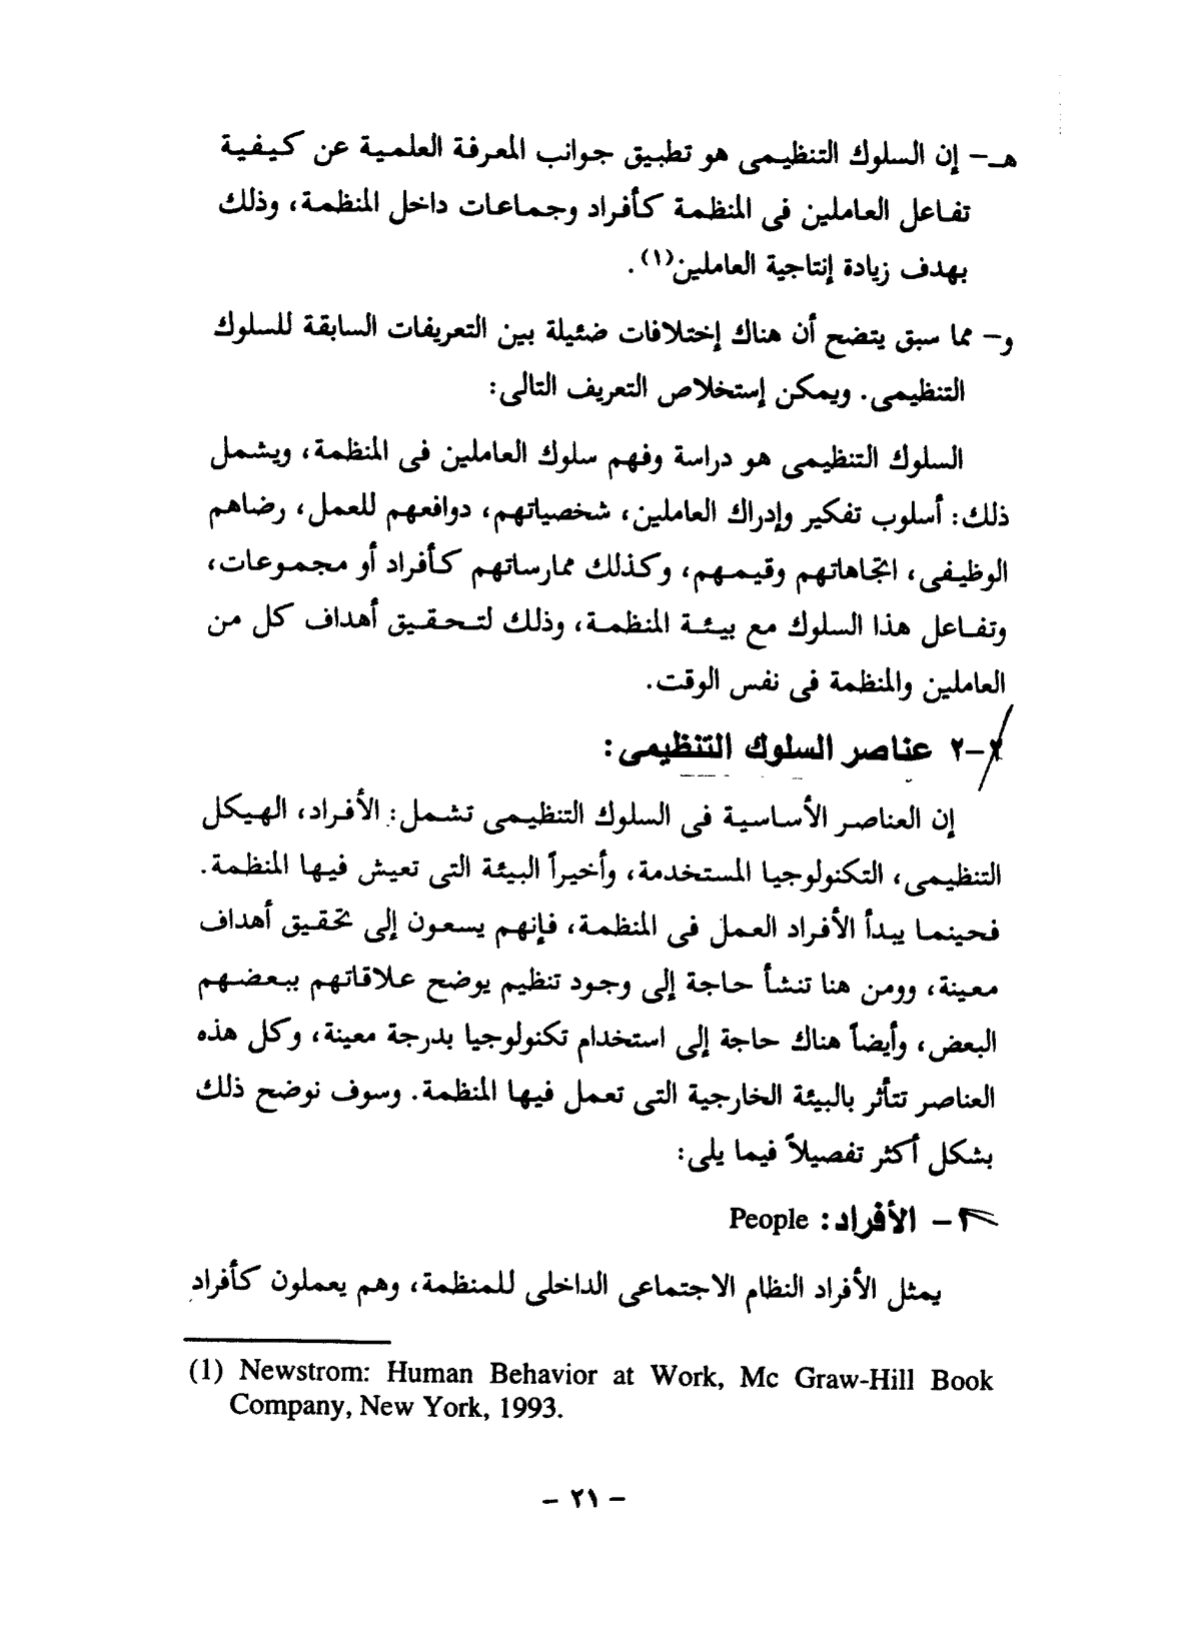 هـ- إن السلوك التنظيمى هو تطبيق جوانب المعرفة العلمية عن كيفية
تفاعل العاملين فى المنظمة كأفراد وجماعات داخل المنظمة، وذلك
بهدف زيادة إنتاجية العاملين(١).
و- مما سبق يتضح أن هناك إختلافات ضئيلة بين التعريفات السابقة للسلوك
التنظيمى. ويمكن إستخلاص التعريف التالى:
السلوك التنظيمى هو دراسة وفهم سلوك العاملين فى المنظمة، ويشمل
ذلك: أسلوب تفكير وإدراك العاملين، شخصياتهم، دوافعهم للعمل، رضاهم
الوظيفى، اتجاهاتهم وقيمهم، وكذلك ممارساتهم كأفراد أو مجموعات،
وتفاعل هذا السلوك مع بيئة المنظمة، وذلك لتحقيق أهداف كل من
العاملين والمنظمة فى نفس الوقت.
٢-٢ عناصر السلوك التنظيمى:
إن العناصر الأساسية فى السلوك التنظيمى تشمل: الأفراد، الهيكل
التنظيمى، التكنولوجيا المستخدمة، وأخيراً البيئة التى تعيش فيها المنظمة.
فحينما يبدأ الأفراد العمل فى المنظمة، فإنهم يسعون إلى تحقيق أهداف
معينة، وومن هنا تنشأ حاجة إلى وجود تنظيم يوضح علاقاتهم ببعضهم
البعض، وأيضاً هناك حاجة إلى استخدام تكنولوجيا بدرجة معينة، وكل هذه
العناصر تتأثر بالبيئة الخارجية التى تعمل فيها المنظمة. وسوف نوضح ذلك
بشكل أكثر تفصيلاً فيما يلى:
١- الأفراد: People
يمثل الأفراد النظام الاجتماعى الداخلى للمنظمة، وهم يعملون كأفراد
(1) Newstrom: Human Behavior at Work, Mc Graw-Hill Book
Company, New York, 1993.
- ٢١ -